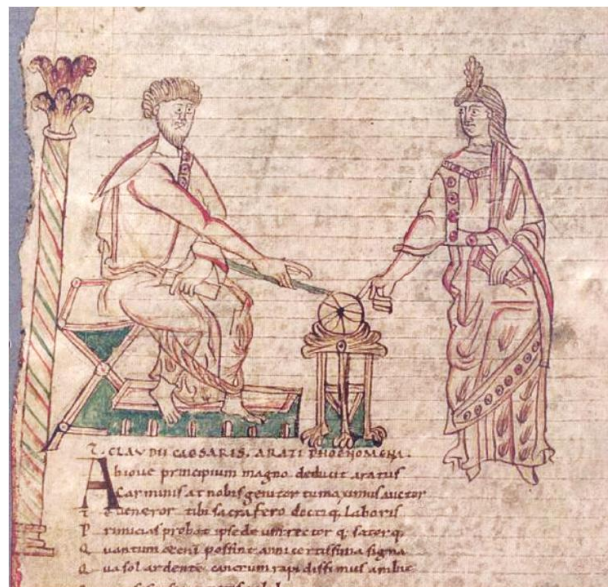 T. CLAVDII CAESARIS. ARATI PHOENOMENA.
Abioue principium magno deducit aratus
Carminis at nobis genitor tu maximus auctor
Te ueneror tibi sacra fero doctiq laboris
Primicias probat ipse deum rector q. sator q.
Quantum &enī possint anni certissima signa
Qua sol ardente cancrum rapidissimus ambit